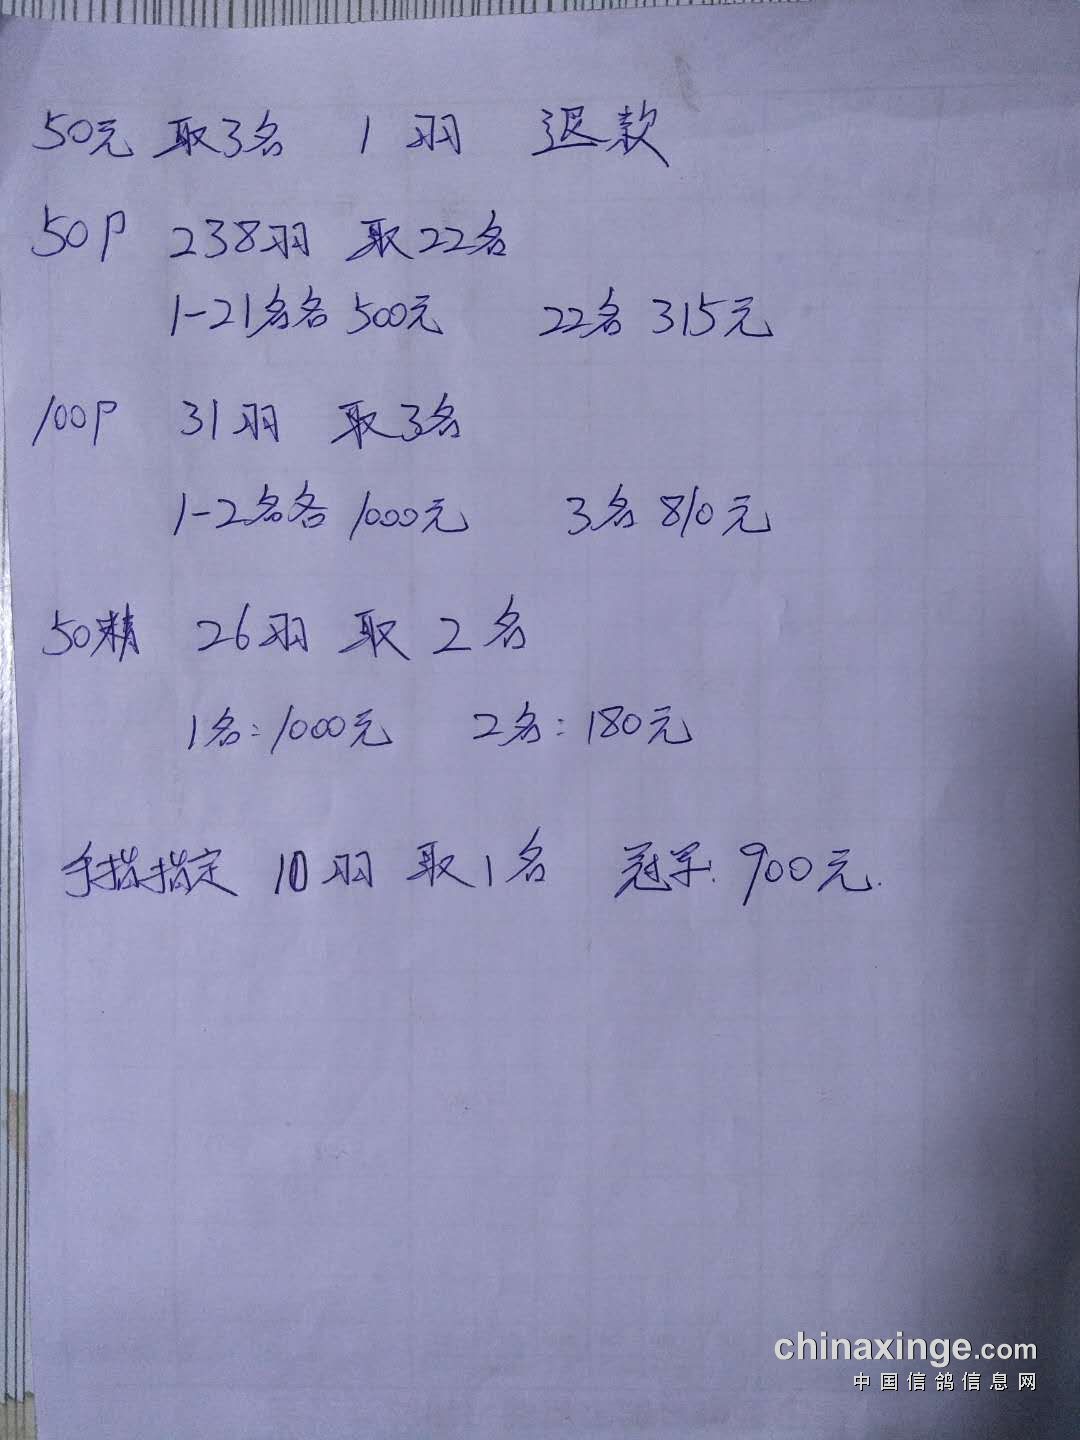 50元 取3名 1羽 退款
50P 238羽 取22名
1-21名各500元 22名315元
100P 31羽 取3名
1-2名各1000元 3名810元
50精 26羽 取2名
1名:1000元 2名:180元
手指指定 10羽 取1名 冠军 900元.
chinaxinge.com
中国信鸽信息网